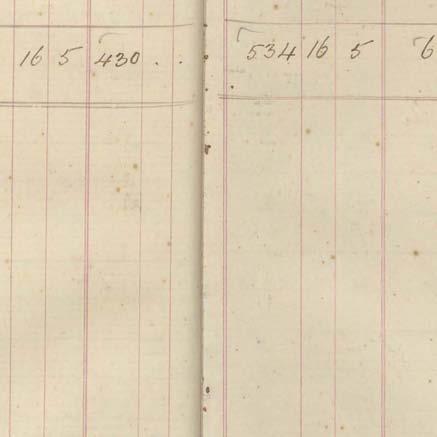 16 5 430 . . 534 16 5 6